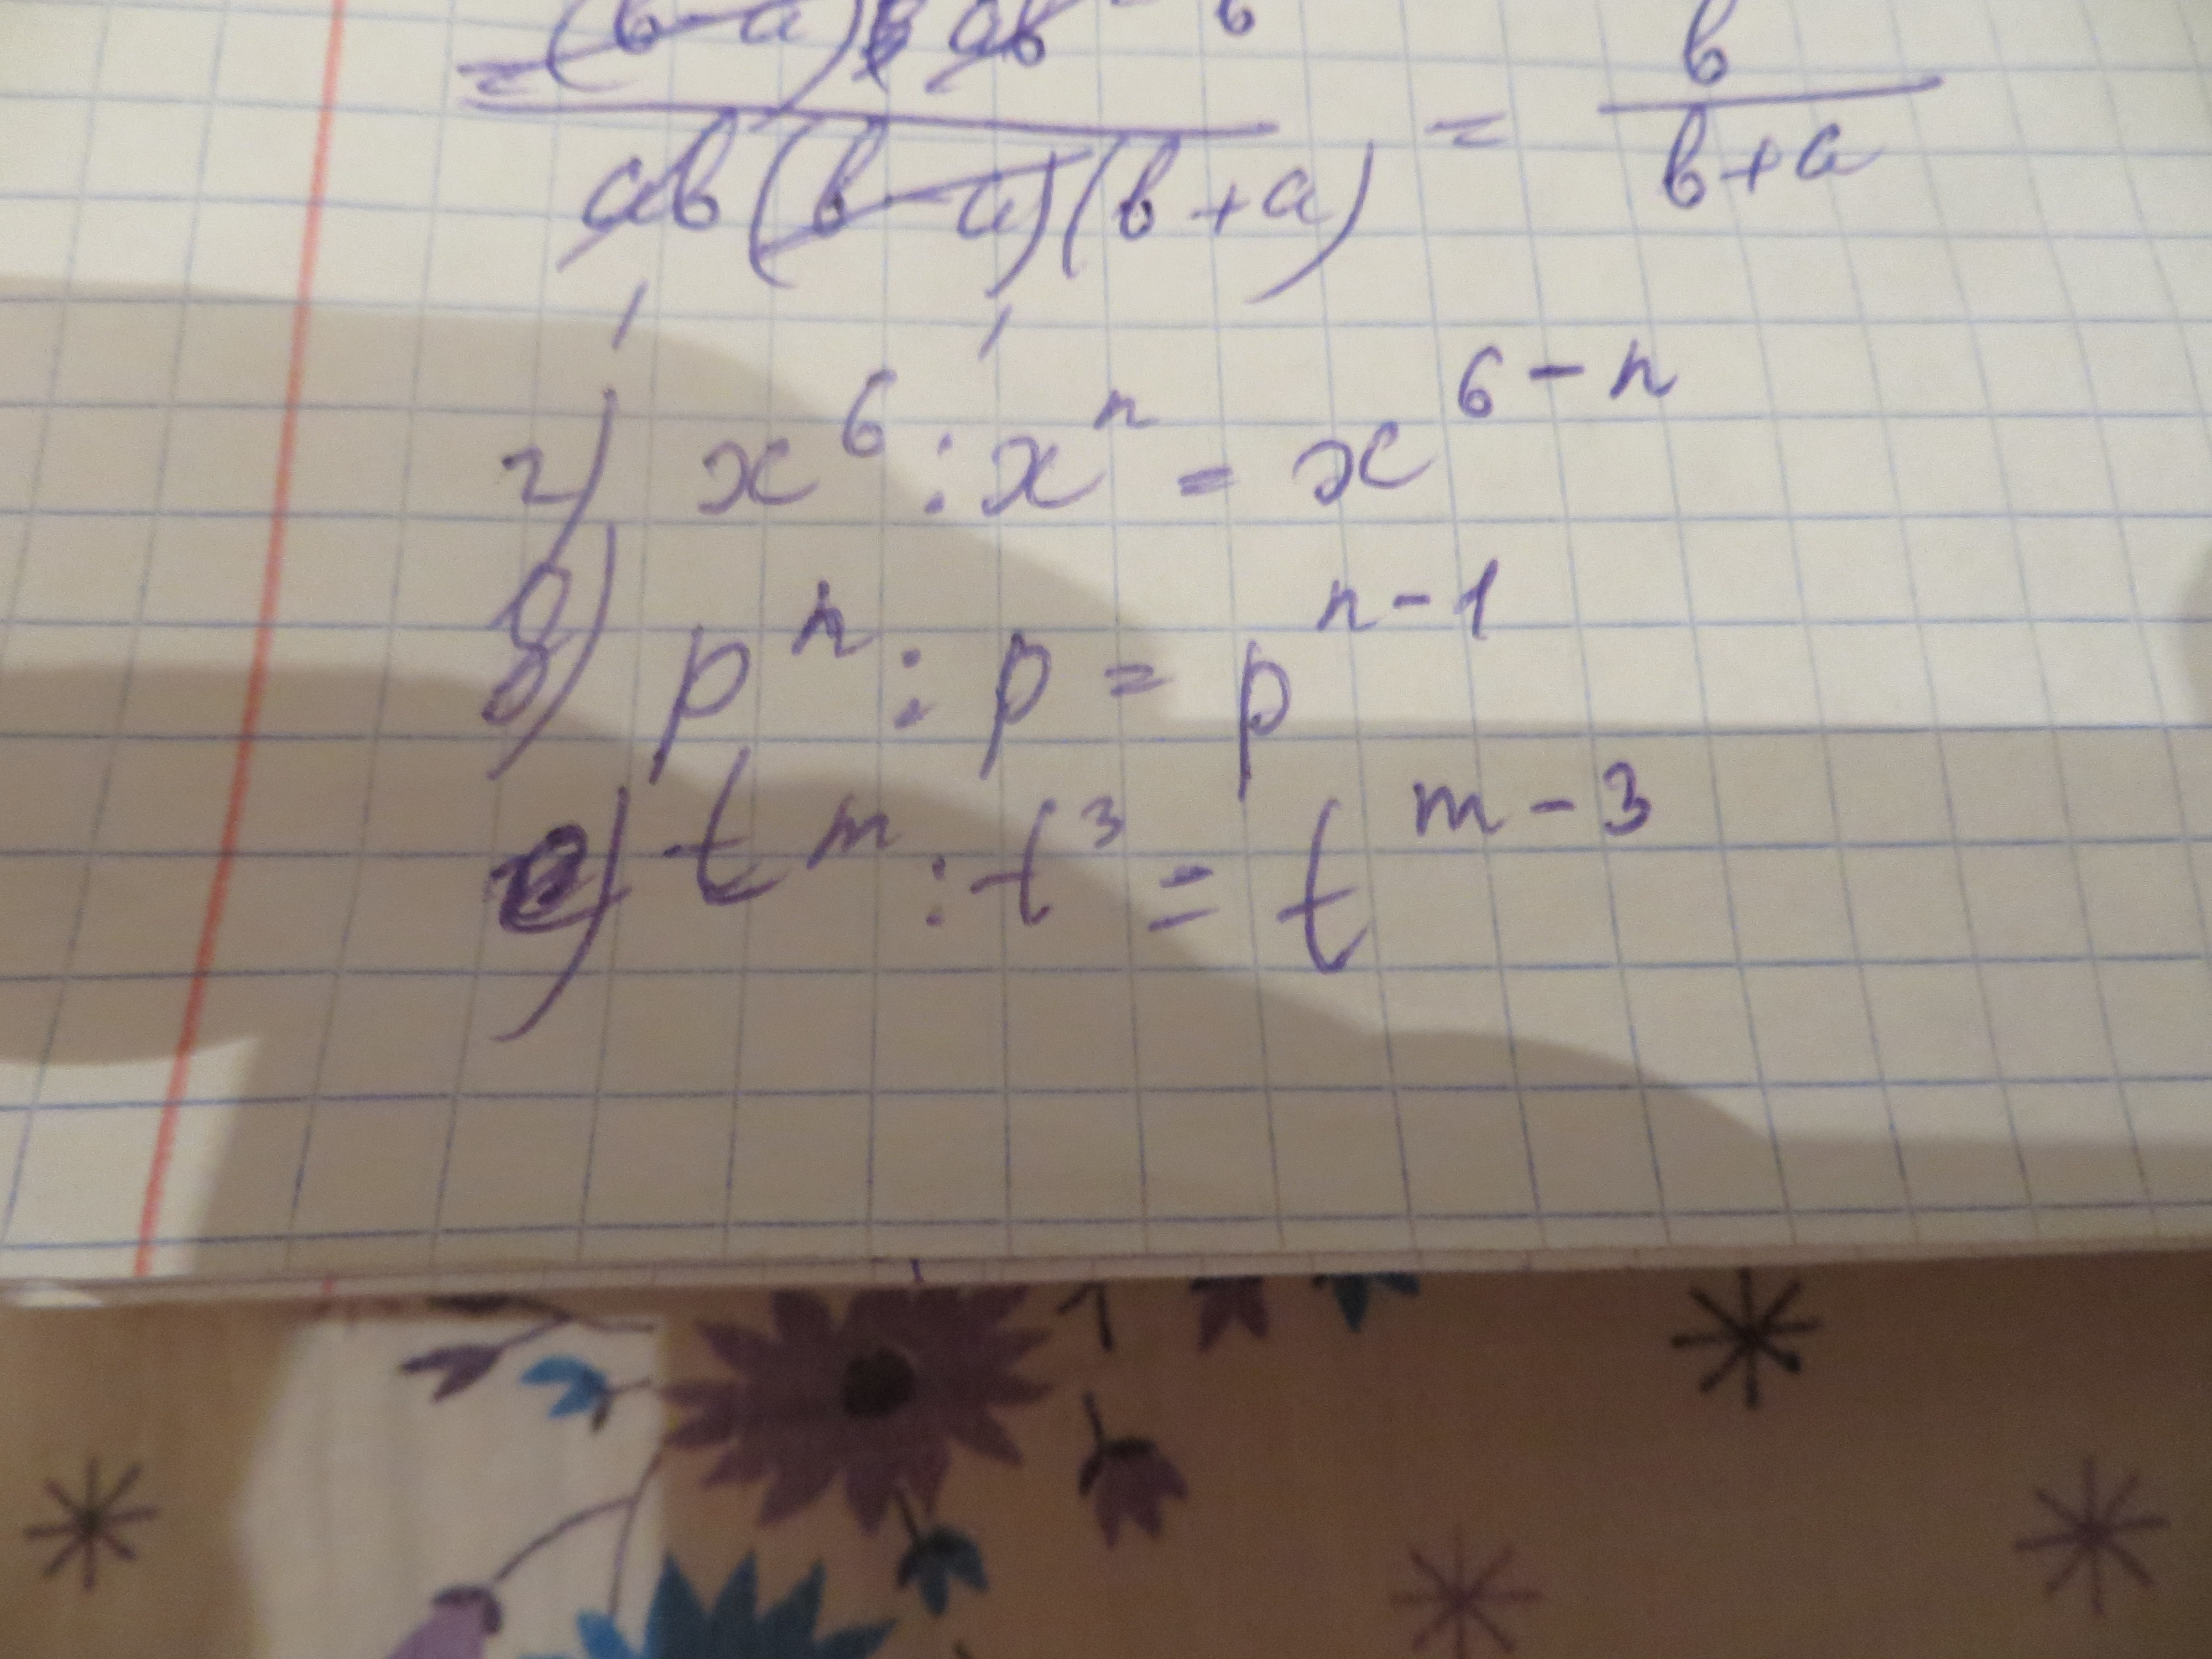 = (b-a) ab · b
ab(b-a)(b+a) = b / b+a
г) x^6 : x^n = x^{6-n}
д) p^n : p = p^{n-1}
е) t^m : t^3 = t^{m-3}